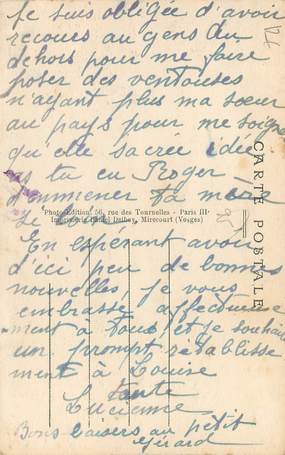 Je suis obligée d'avoir
recours au gens du
dehors pour me faire
poser des ventouses
n'ayant plus ma sœur
au pays pour me soigner
qu'elle sacrée idée
as tu eu Roger
d'emmener ta mère
Photo-Edition, 56, rue des Tournelles - Paris III·
Imprimerie Daniel Delboy, Mirecourt (Vosges)
En espérant avoir
d'ici peu de bonnes
nouvelles je vous
embrasse affectueuse
ment à tous et je souhaite
un prompt rétablisse
ment à Louise
tante
Lucienne
Bons baisers au petit
Gérard
CARTE POSTALE